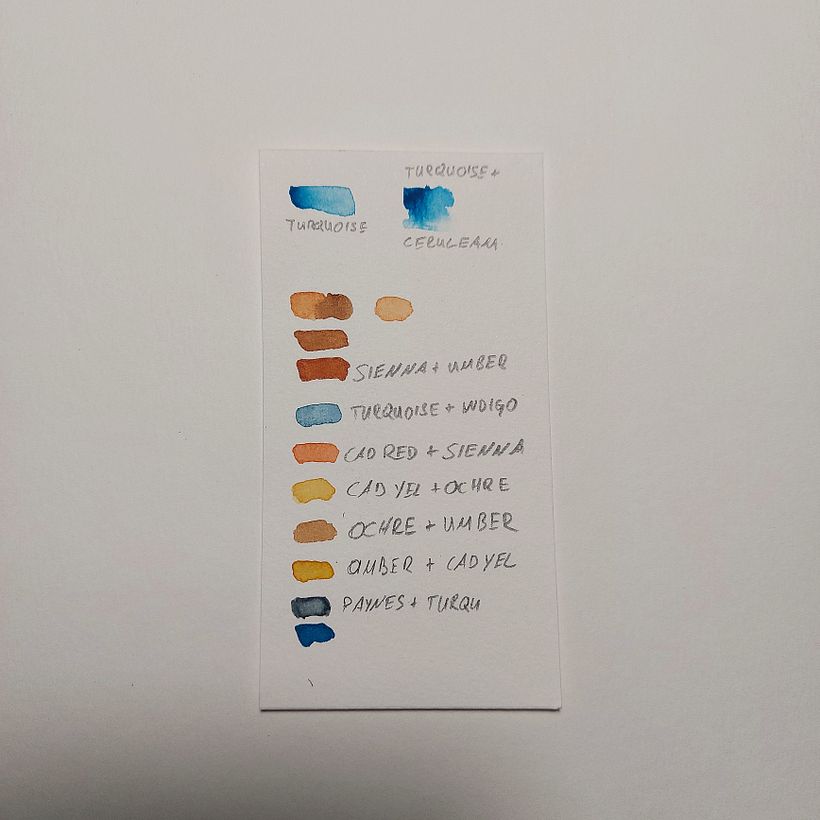 TURQUOISE +
TURQUOISE
CERULEAN
SIENNA + UMBER
TURQUOISE + INDIGO
CAD RED + SIENNA
CAD YEL + OCHRE
OCHRE + UMBER
AMBER + CAD YEL
PAYNES + TURQU